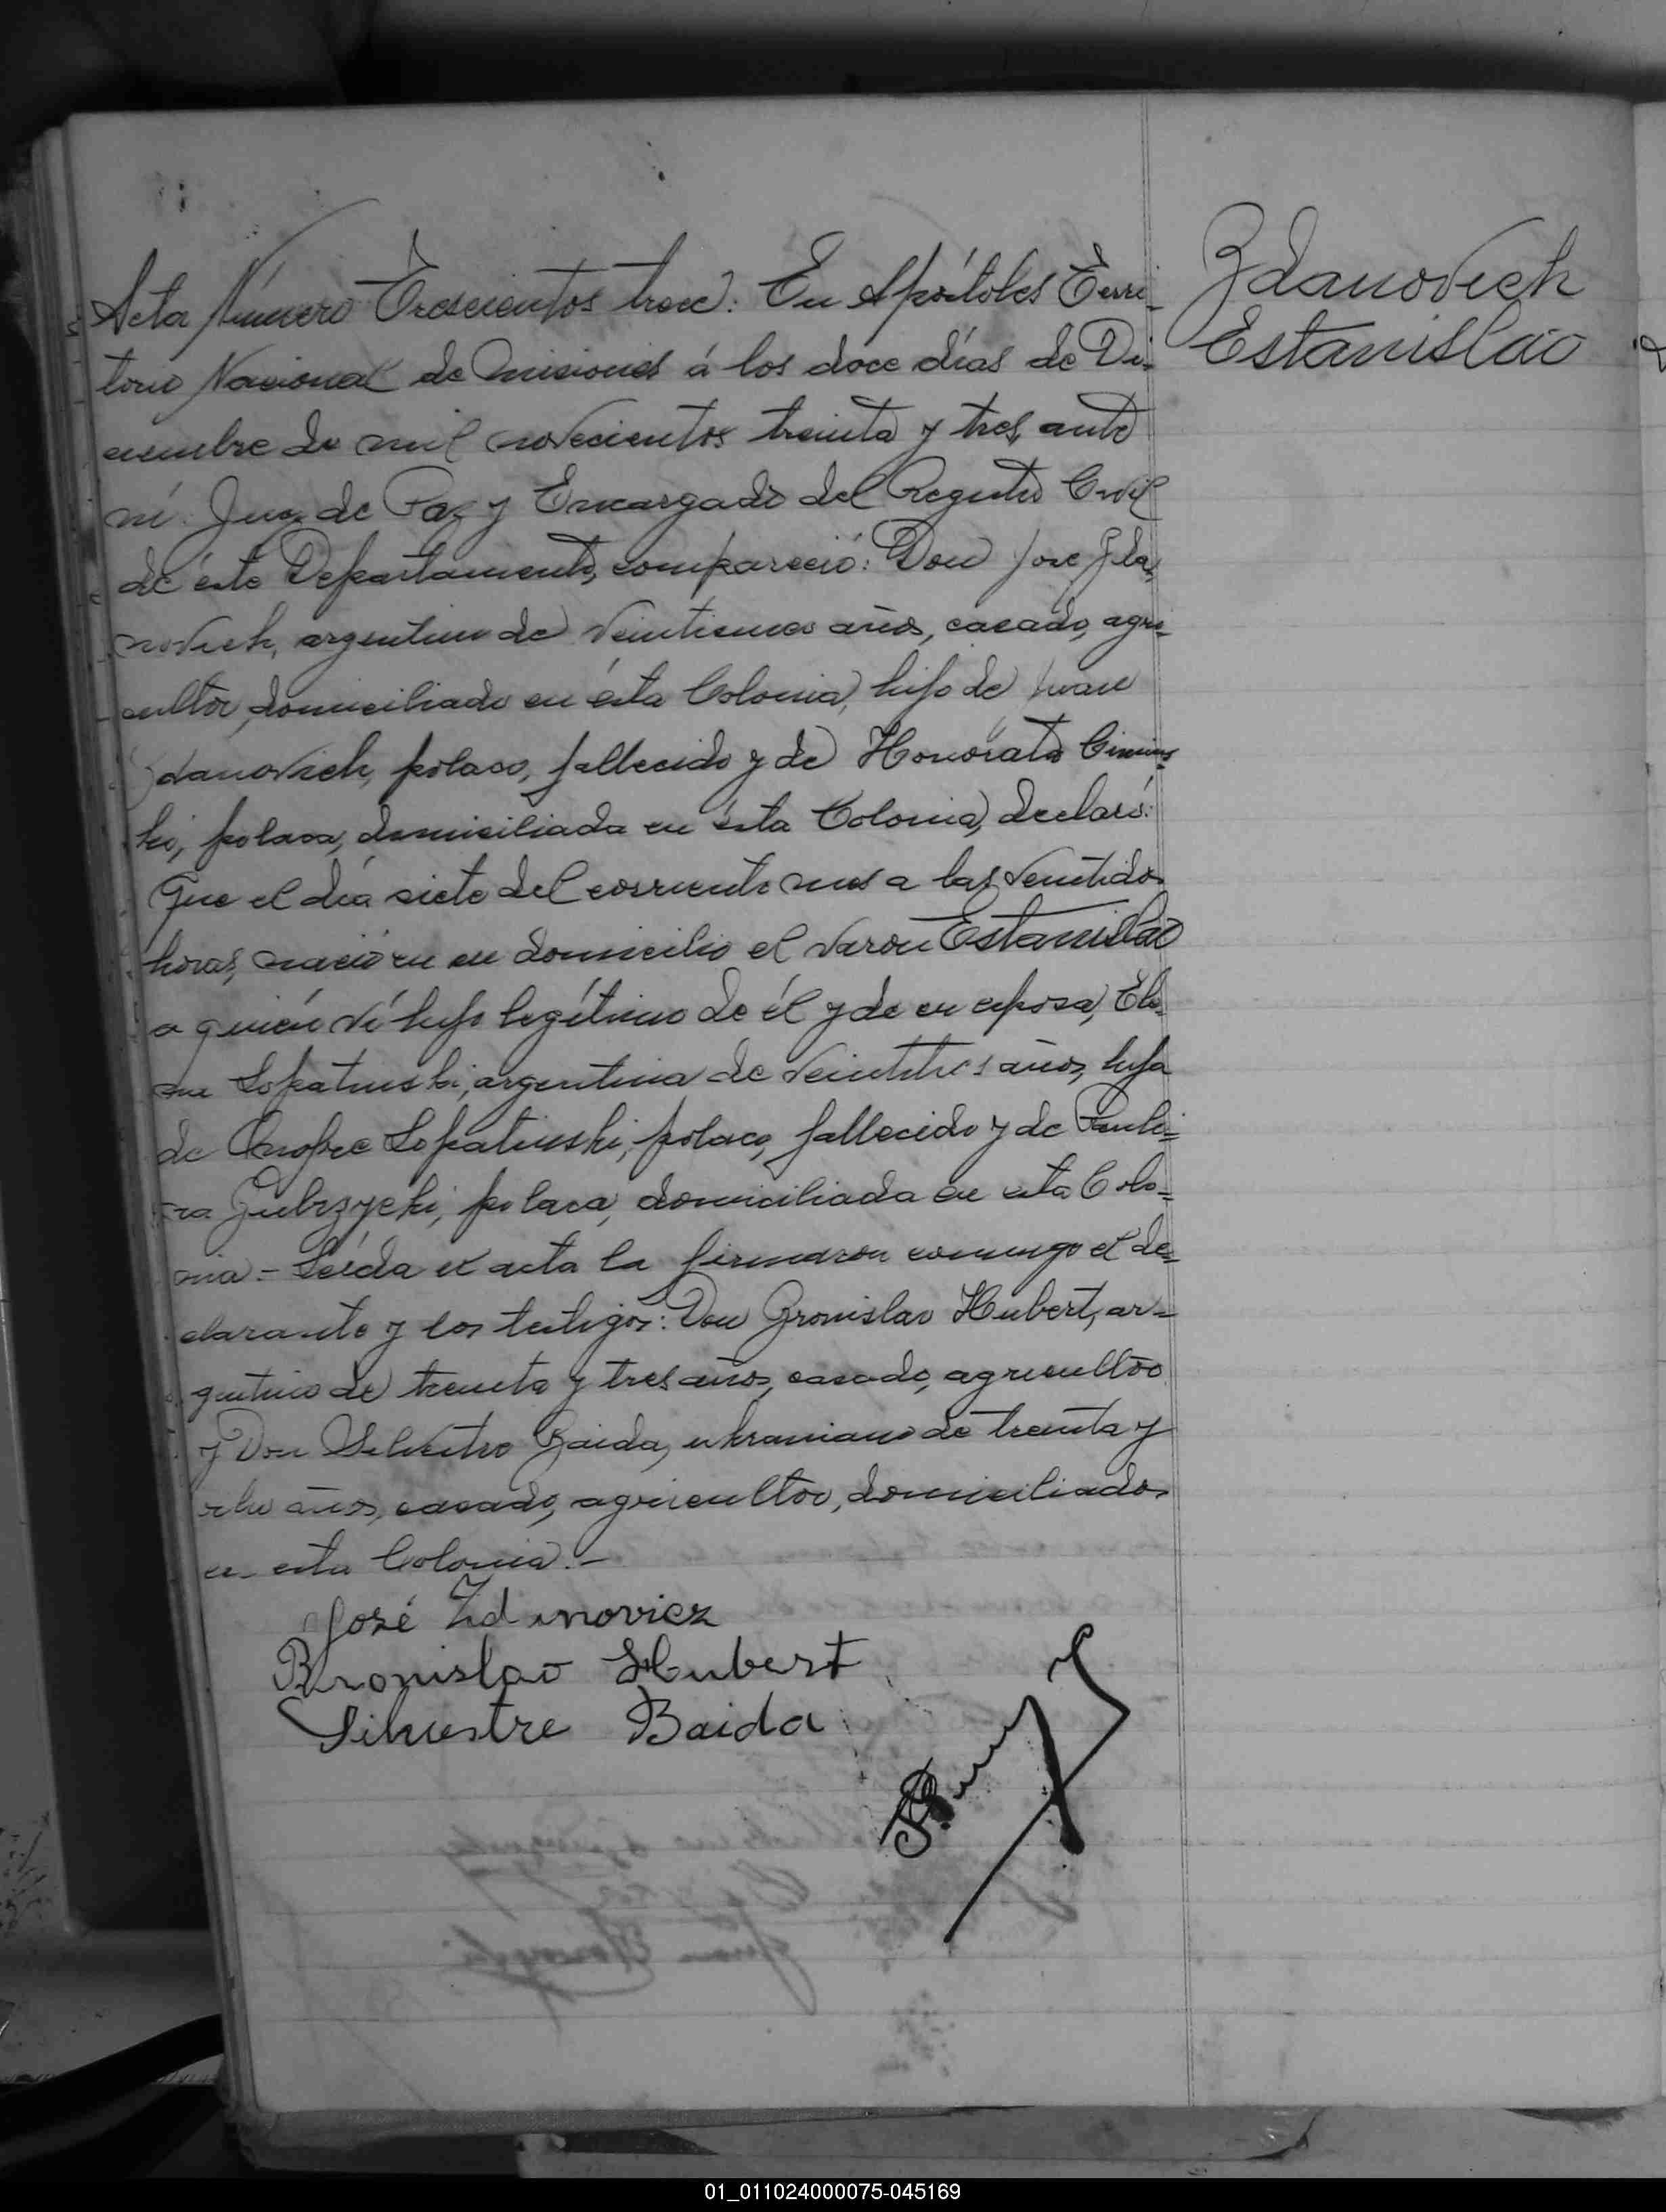 Zdanovich
Estanislao
Acta Número Trescientos trece: En Apóstoles Terri-
torio Nacional de Misiones á los doce días de Di-
ciembre de mil novecientos treinta y tres, ante
mi Juez de Paz y Encargado del Registro Civil
de éste Departamento, compareció: Don José Zda-
novich, argentino de años, casado, agri-
cultor, domiciliado en ésta Colonia, hijo de Juan
Zdanovich, polaco, fallecido y de Honorata
ki, polaca, domiciliada en ésta Colonia, declaró:
Que el día siete del corriente mes a las veintidos
horas, nació en su domicilio el varon Estanislao
a quién ví hijo legítimo de él y de su esposa, Ele-
na Lopatinski, argentina de veintitres años, hija
de Onofre Lopatinski, polaco, fallecido y de Pauli-
na Zubrzycki, polaca, domiciliada en esta Colo-
nia.- Leída el acta la firmaron conmigo el de-
clarante y los testigos: Don Bronislao Hubert, ar-
gentino de treinta y tres años, casado, agricultor
y Don Silvestre Baida, ukraniano de treinta y
ocho años, casado, agricultor, domiciliados
en esta Colonia.-
José Zdanovicz
Bronislao Hubert
Silvestre Baida
01_011024000075-045169